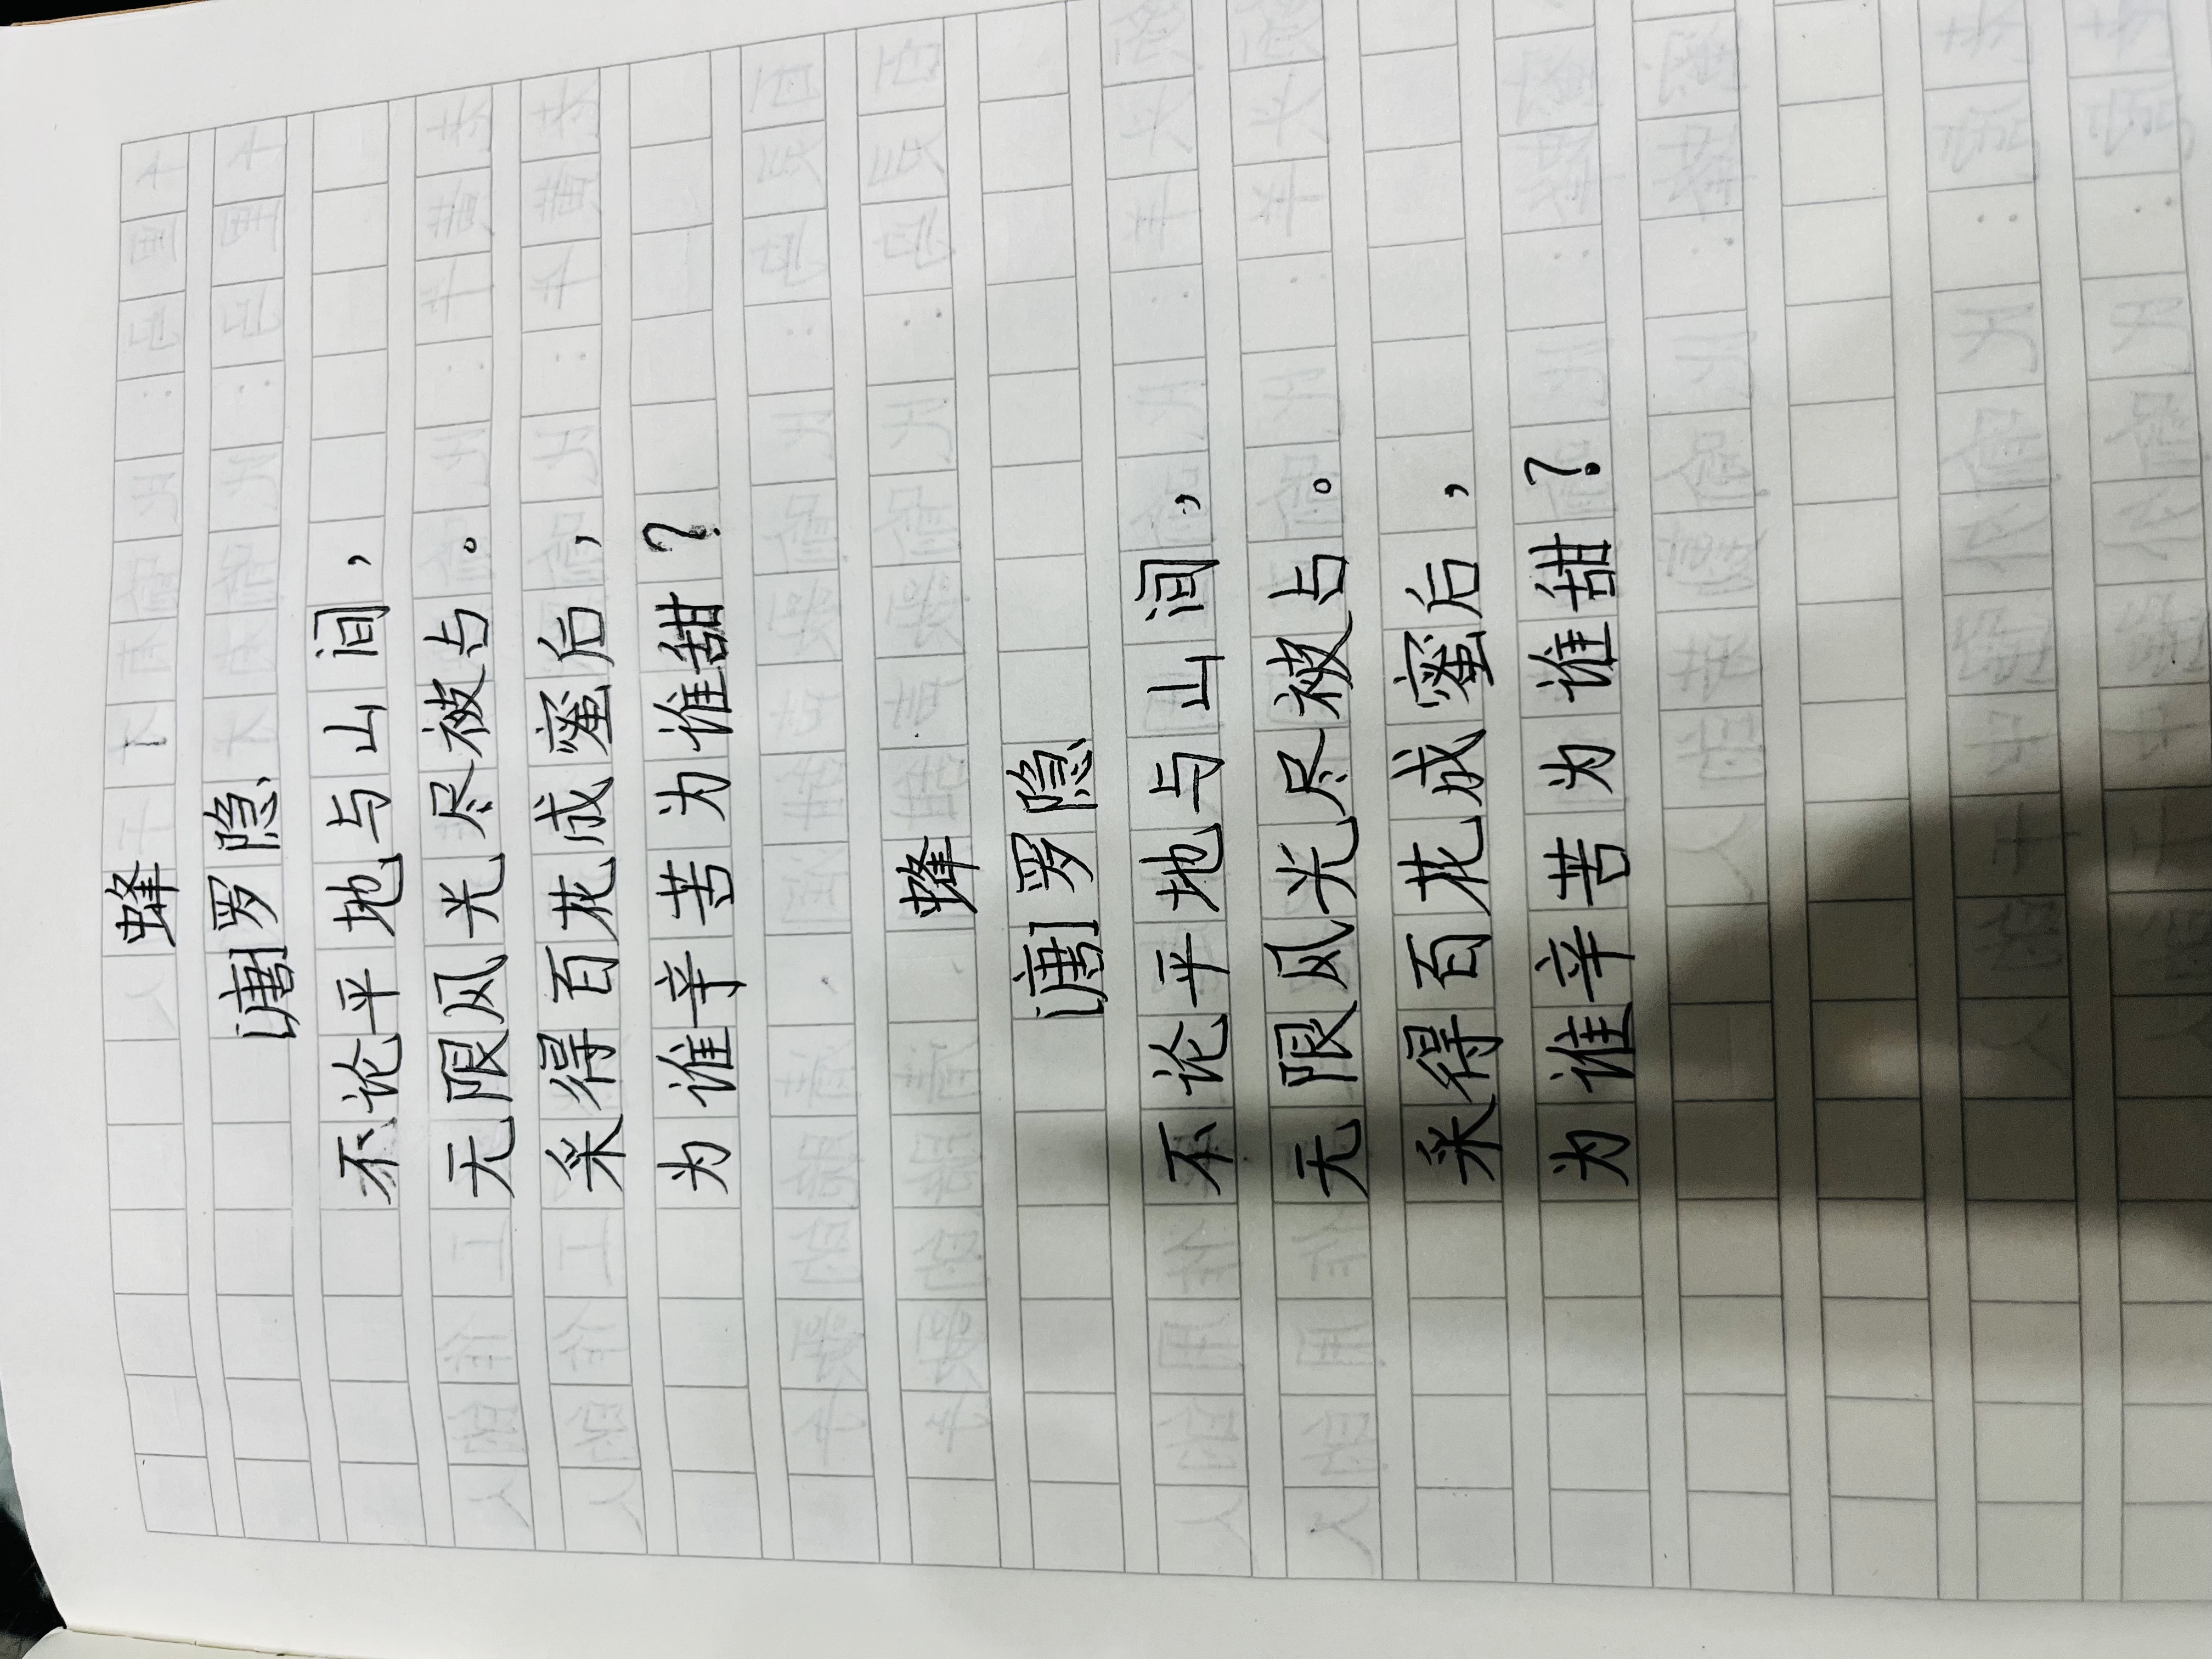 蜂
[唐]罗隐
不论平地与山间，
无限风光尽被占。
采得百花成蜜后，
为谁辛苦为谁甜？
蜂
[唐]罗隐
不论平地与山间，
无限风光尽被占。
采得百花成蜜后，
为谁辛苦为谁甜？